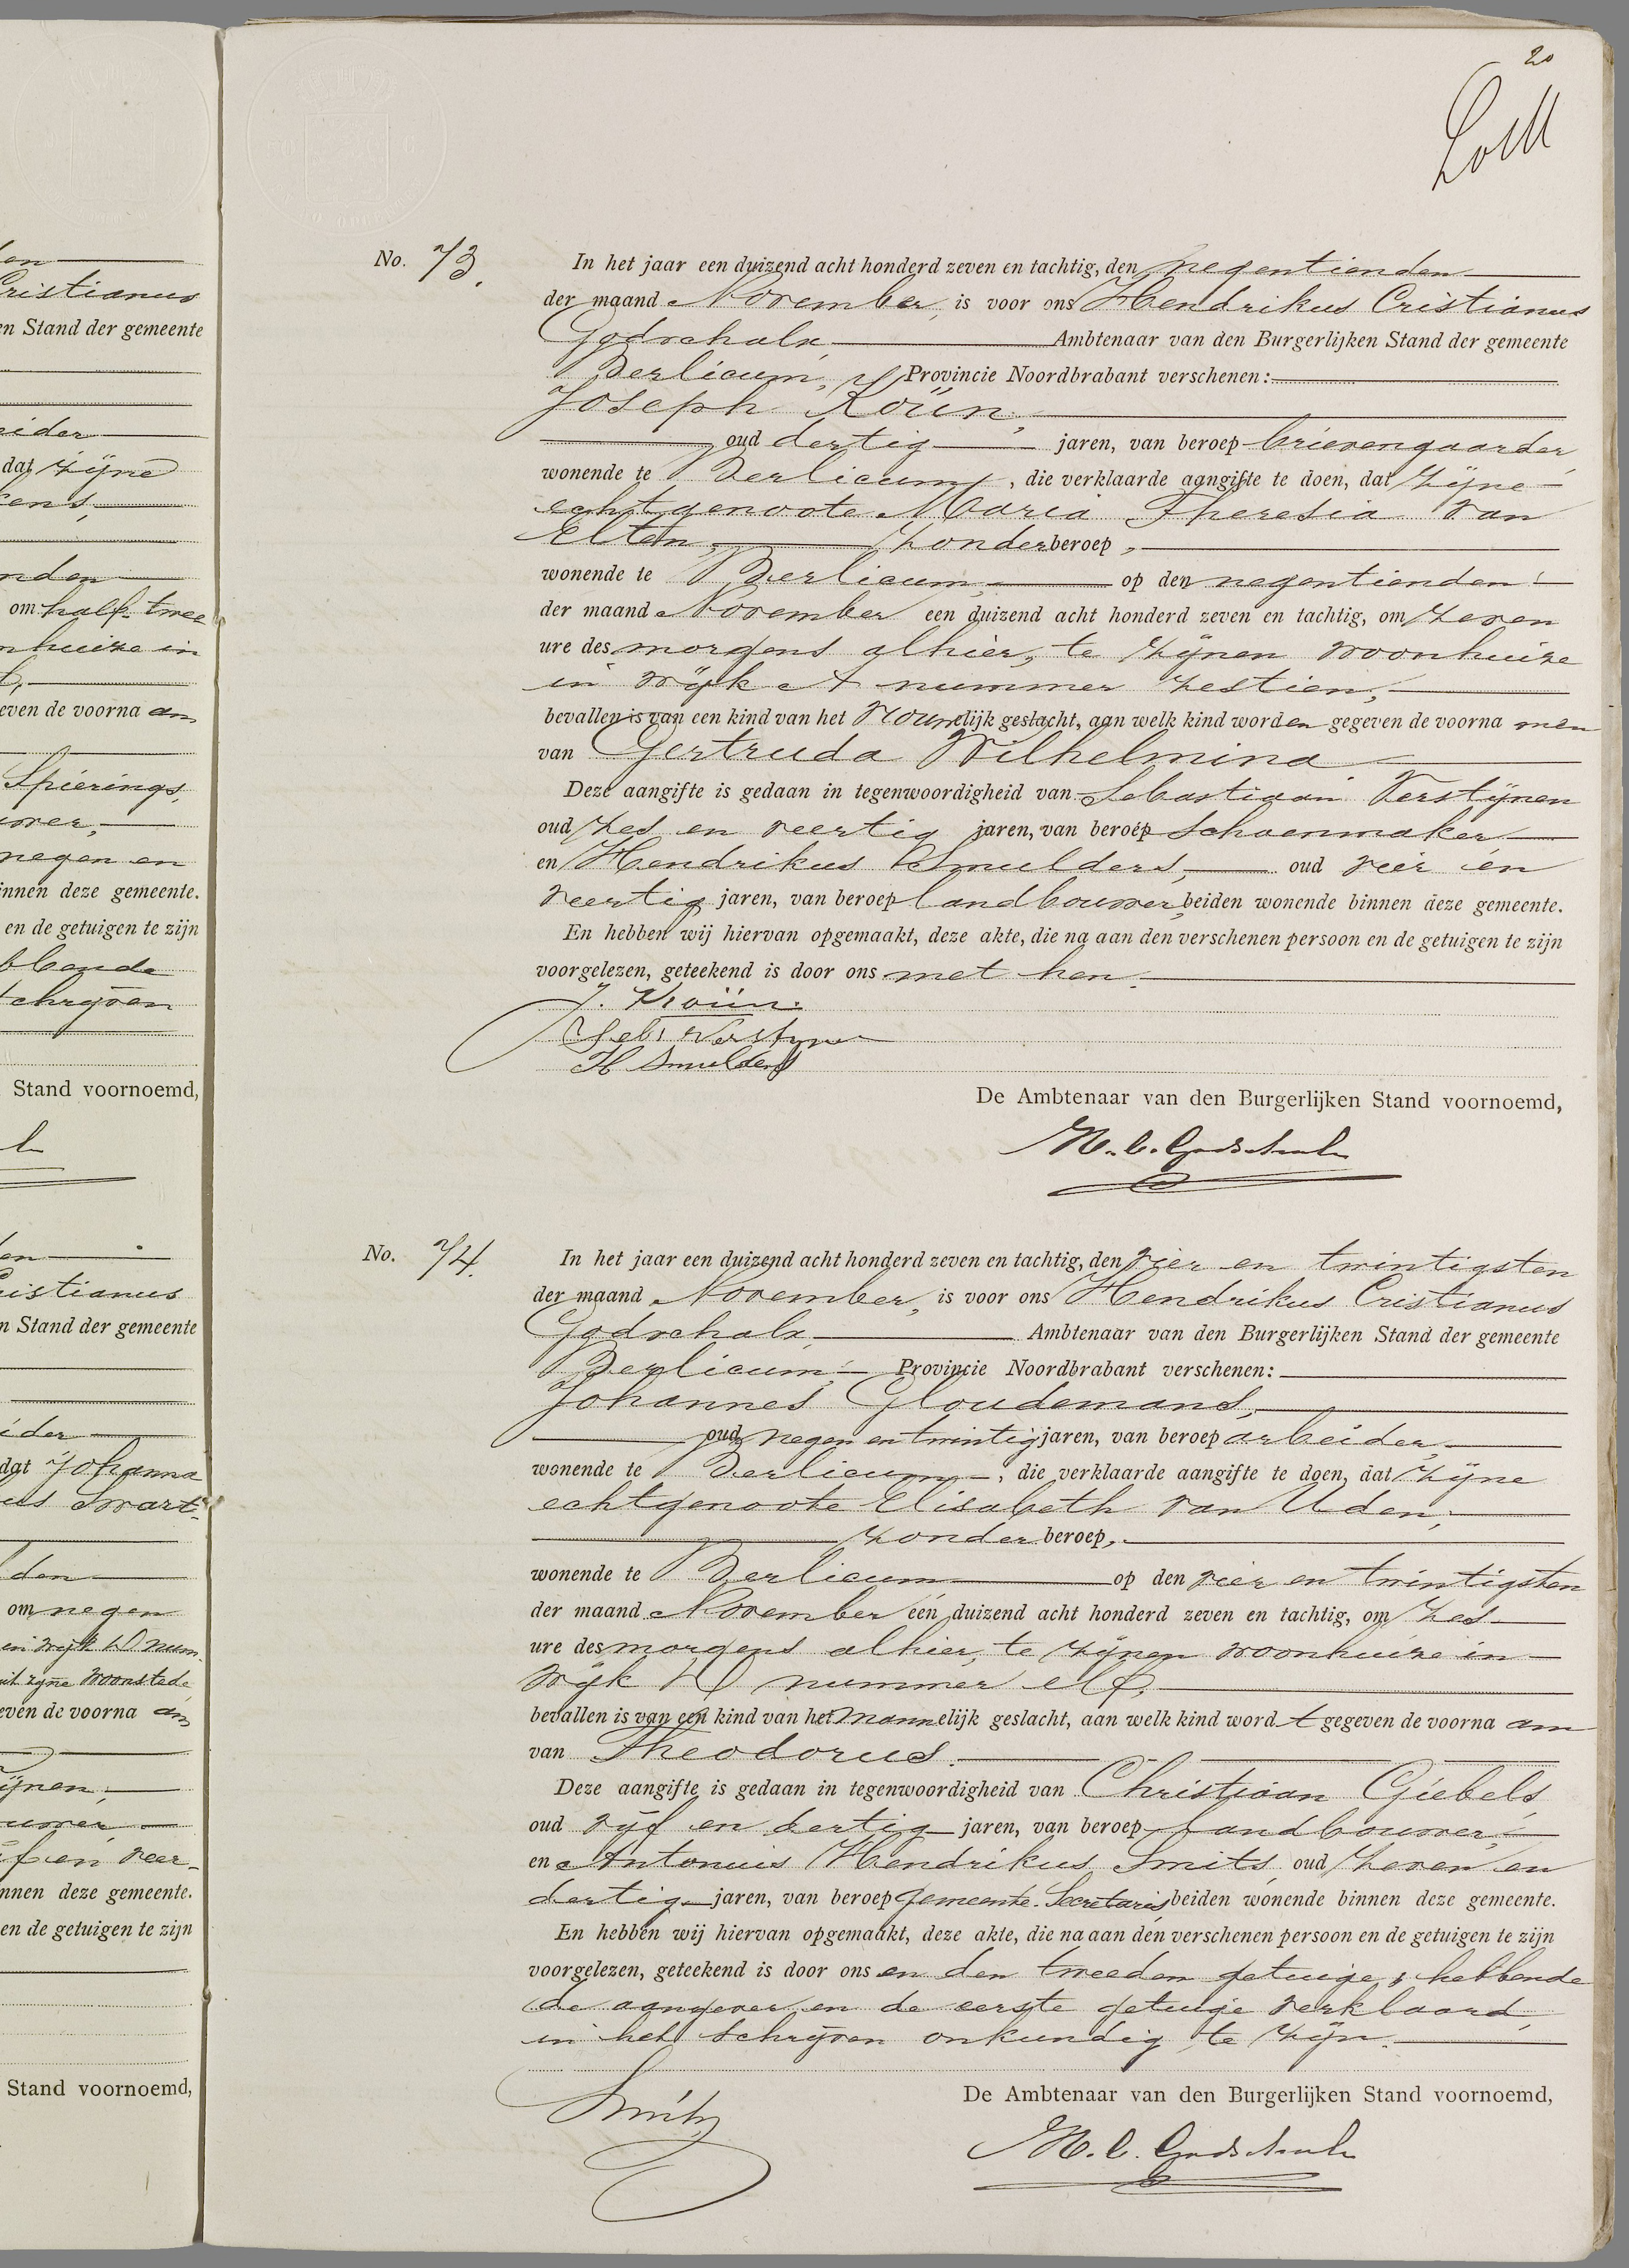 en
Cristianus
en Stand der gemeente
eider
dat zijne
kens,
nden
om half twee
nhuize in
even de voorna am
Spierings,
uwer,
negen en
innen deze gemeente.
en de getuigen te zijn
bbende
schrijven
Stand voornoemd,
en
Cristianus
n Stand der gemeente
eider
dat Johanna
us Swart-
den
om negen
in wijk D num-
uit zijne woonstede
even de voorna am
ijnen,
uwer,
jf en veer-
nnen deze gemeente.
en de getuigen te zijn
Stand voornoemd,
20
No. 73.
In het jaar een duizend acht honderd zeven en tachtig, den negentienden
der maand November, is voor ons Hendrikus Cristianus
Godschalx, Ambtenaar van den Burgerlijken Stand der gemeente
Berlicum, Provincie Noordbrabant verschenen:
Joseph Koün,
oud dertig jaren, van beroep brievengaarder,
wonende te Berlicum, die verklaarde aangifte te doen, dat zijne
echtgenoote Maria Theresia van
Elten, zonder beroep,
wonende te Berlicum, op den negentienden
der maand November een duizend acht honderd zeven en tachtig, om zeven
ure des morgens alhier, te zijnen woonhuize
in wijk A nummer zestien,
bevallen is van een kind van het vrouwelijk geslacht, aan welk kind worden gegeven de voorna men
van Gertruda Wilhelmina
Deze aangifte is gedaan in tegenwoordigheid van Sebastiaan Verstijnen
oud zes en veertig jaren, van beroep schoenmaker
en Hendrikus Smulders, oud vier en
veertig jaren, van beroep landbouwer, beiden wonende binnen deze gemeente.
En hebben wij hiervan opgemaakt, deze akte, die na aan den verschenen persoon en de getuigen te zijn
voorgelezen, geteekend is door ons met hen.
J. Koün.
Seb. Verstynen
H Smulders
De Ambtenaar van den Burgerlijken Stand voornoemd,
H. C. Godschalx
No. 74.
In het jaar een duizend acht honderd zeven en tachtig, den vier en twintigsten
der maand November, is voor ons Hendrikus Cristianus
Godschalx, Ambtenaar van den Burgerlijken Stand der gemeente
Berlicum, Provincie Noordbrabant verschenen:
Johannes Gloudemans,
oud negen en twintig jaren, van beroep arbeider,
wonende te Berlicum, die verklaarde aangifte te doen, dat zijne
echtgenoote Elisabeth van Uden,
zonder beroep,
wonende te Berlicum op den vier en twintigsten
der maand November een duizend acht honderd zeven en tachtig, om zes
ure des morgens alhier, te zijnen woonhuize in
wijk D nummer elf,
bevallen is van een kind van het mannelijk geslacht, aan welk kind word t gegeven de voorna am
van Theodorus.
Deze aangifte is gedaan in tegenwoordigheid van Christiaan Giebels,
oud vijf en dertig jaren, van beroep landbouwer,
en Antonius Hendrikus Smits, oud zeven en
dertig jaren, van beroep gemeente-Secretaris, beiden wonende binnen deze gemeente.
En hebben wij hiervan opgemaakt, deze akte, die na aan den verschenen persoon en de getuigen te zijn
voorgelezen, geteekend is door ons en den tweeden getuige, hebbende
de aangever en de eerste getuige verklaard,
in het schrijven onkundig te zijn.
Smits
De Ambtenaar van den Burgerlijken Stand voornoemd,
H. C. Godschalx